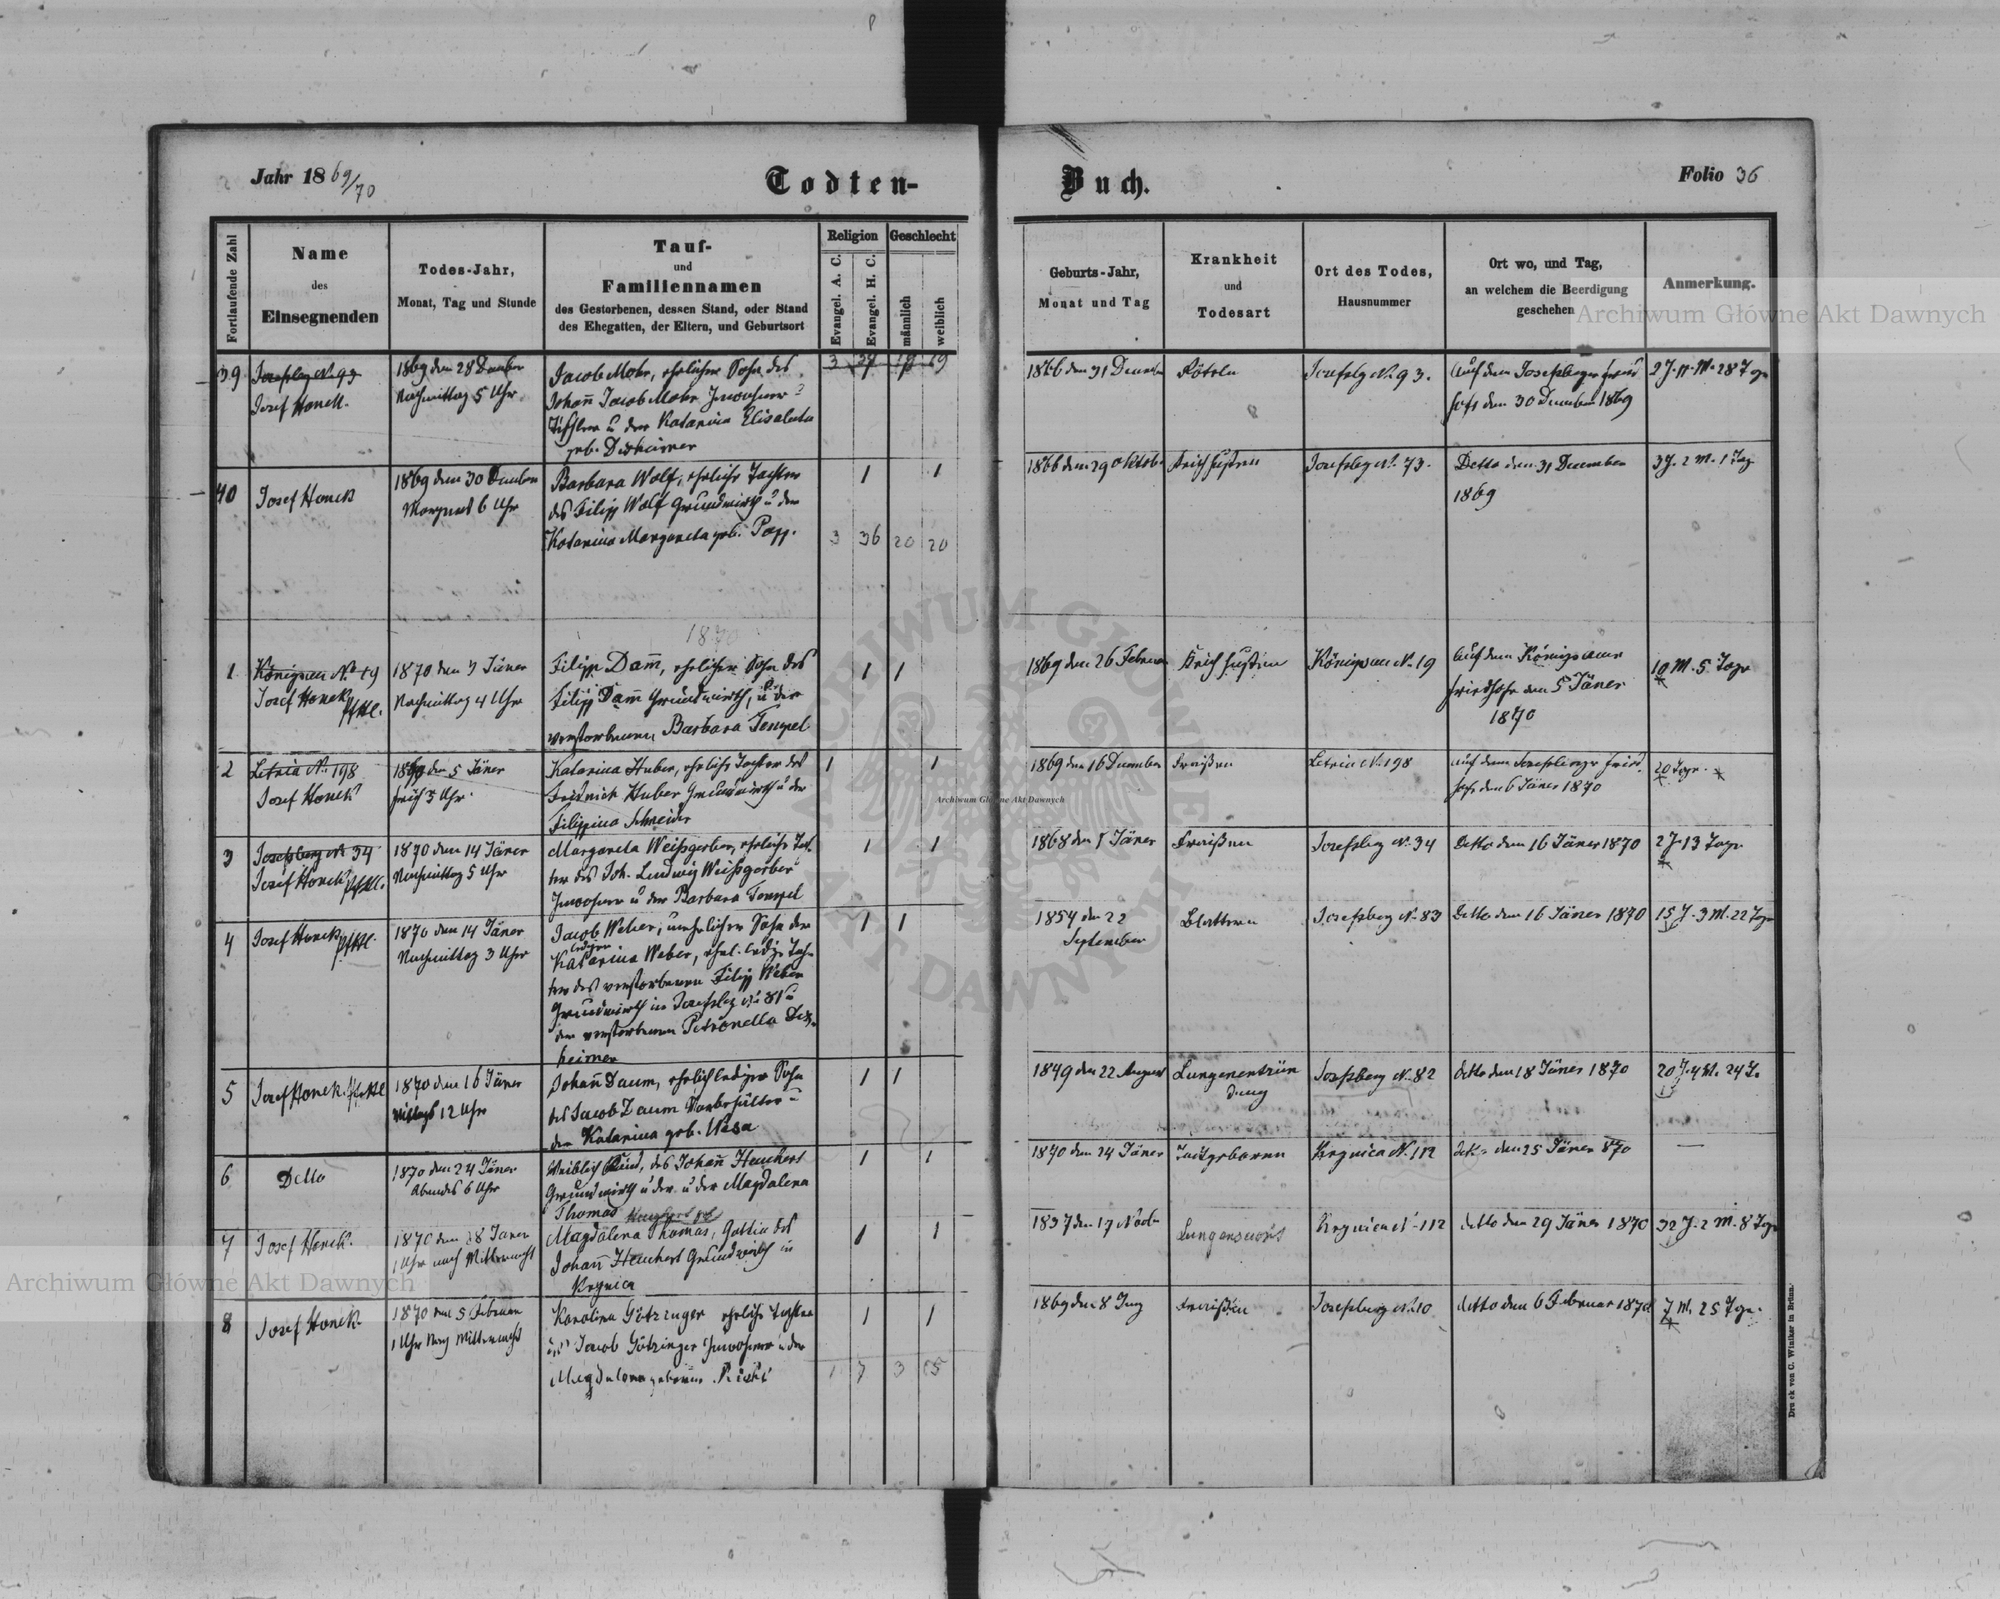 Jahr 1869/70
Todten-
Buch.
Folio 36
Fortlaufende Zahl
Name
des
Einsegnenden
Todes-Jahr,
Monat, Tag und Stunde
Tauf-
und
Familiennamen
des Gestorbenen, dessen Stand, oder Stand
des Ehegatten, der Eltern, und Geburtsort
Religion
Evangel. A. C.
Evangel. H. C.
Geschlecht
männlich
weiblich
Geburts-Jahr,
Monat und Tag
Krankheit
und
Todesart
Ort des Todes,
Hausnummer
Ort wo, und Tag,
an welchem die Beerdigung
geschehen
Anmerkung.
39
Josefsbg No. 93
Josef Honek.
1869 den 28 Dember
Nachmittag 5 Uhr
Jacob Mohr, ehelicher Sohn des
Johañ Jacob Mohr Inwohner
Tischler u der Katarina Elisabeta
geb. Dexheimer
3 19
1866 den 31 Decemb
Röteln
Josefsbg No. 93.
Auf dem Josefsberger Fried
hofe den 30 Decemb 1869
2 J. 11 M. 28 Tage
40
Josef Honek
1869 den 30 Dember
Morgens 6 Uhr
Barbara Wolf, eheliche Tochter
des Filipp Wolf Grundwirth u der
Katarina Margareta geb. Popp.
1 1
3 36 20 20
1866 den 29 Oktob.
Keichhusten
Josefsbeg No. 73.
Detto den 31 December
1869
3 J. 2 M. 1 Tag
1870
1
Königsau No. 19
Josef Honek
1870 den 3 Jäner
Nachmittag 4 Uhr
Filipp Dam̃, ehelicher Sohn des
Filipp Dam̃ Grundwirth, u der
verstorbenen Barbara Tempel
1 1
1869 den 26 Februar
Keichhusten
Königsau No. 19
Auf dem Königsauer
Friedhofe den 5 Jäner
1870
10 M. 5 Tage
2
Letnia No. 198
Josef Honek
den 5 Jäner
früh 3 Uhr.
Katarina Huber, eheliche Tochter des
Fridrich Huber Grundwirth u der
Filippina Schneider
1 1
1869 den 16 Decembe
Fraißen
Letnia No. 198
Auf dem Josefsberger Fried.
hofe den 6 Jäner 1870
20 Tage.
3
Josefsberg No 34
Josef Honek
1870 den 14 Jäner
Nachmittag 5 Uhr
Margareta Weißgerber, eheliche Toch
ter des Joh. Ludwig Weißgerber
Inwohner u der Barbara Tempel
1 1
1868 den 1 Jäner
Fraißen
Josefsbeg No. 34
Detto den 16 Jäner 1870
2 J. 13 Tage
4
Josef Honek
1870 den 14 Jäner
Nachmittag 3 Uhr
Jacob Weber, unehelicher Sohn der
ledigen
Katarina Weber, ehel. ledige Toch
ter des verstorbenen Filipp Weber
Grundwirth in Josefsbeg No 81 u
der verstorbenen Petronella Dex.
heimer
1 1
1854 den 22
September
Blattern
Josefsberg No. 83
Detto den 16 Jäner 1870
15 J. 3 M. 22 Tage
5
Josef Honek.
1870 den 16 Jäner
Mittags 12 Uhr
Johañ Daum, ehelich lediger Sohn
des Jacob Daum Vorbehälter u
der Katarina geb. Wesa
1 1
1849 den 22 August
Lungenentzün
dung
Josefsberg No. 82
detto den 18 Jäner 1870
20 J. 4 M. 24 T.
6
Detto
1870 den 24 Jäner
Abends 6 Uhr
Weiblich Kind, des Johañ Heuchert
Grundwirth u der u der Magdalena
Thomas
1 1
den 24 Jäner
Todtgeboren
Krynica No. 112
detto den 25 Jäner 870
—
7
Josef Honek.
1870 den 28 Janer
1 Uhr nach Mitternacht
Magdalena Thomas, Gattin des
Johañ Heuchert Grundwirth in
Krynica
1 1
1837 den 17 Novb
Krynica No. 112
detto den 29 Jäner 1870
32 J. 2 M. 8 Tage
8
Josef Honek
1870 den 5 Februar
1 Uhr Nach Mitternacht
Karolina Götzinger eheliche Tochter
des Jacob Götzinger Inwohner u der
Magdalena geborne
1 1
1 7 3 5
1869 den 8 Juny
Fraißen
Josefsberg No. 10
detto den 6 Februar 1870
7 M. 25 Tage.
Druck von C. Winiker in Brünn.
Archiwum Główne Akt Dawnych
Archiwum Główne Akt Dawnych
Archiwum Główne Akt Dawnych
ARCHIWUM GŁÓWNE
AKT DAWNYCH